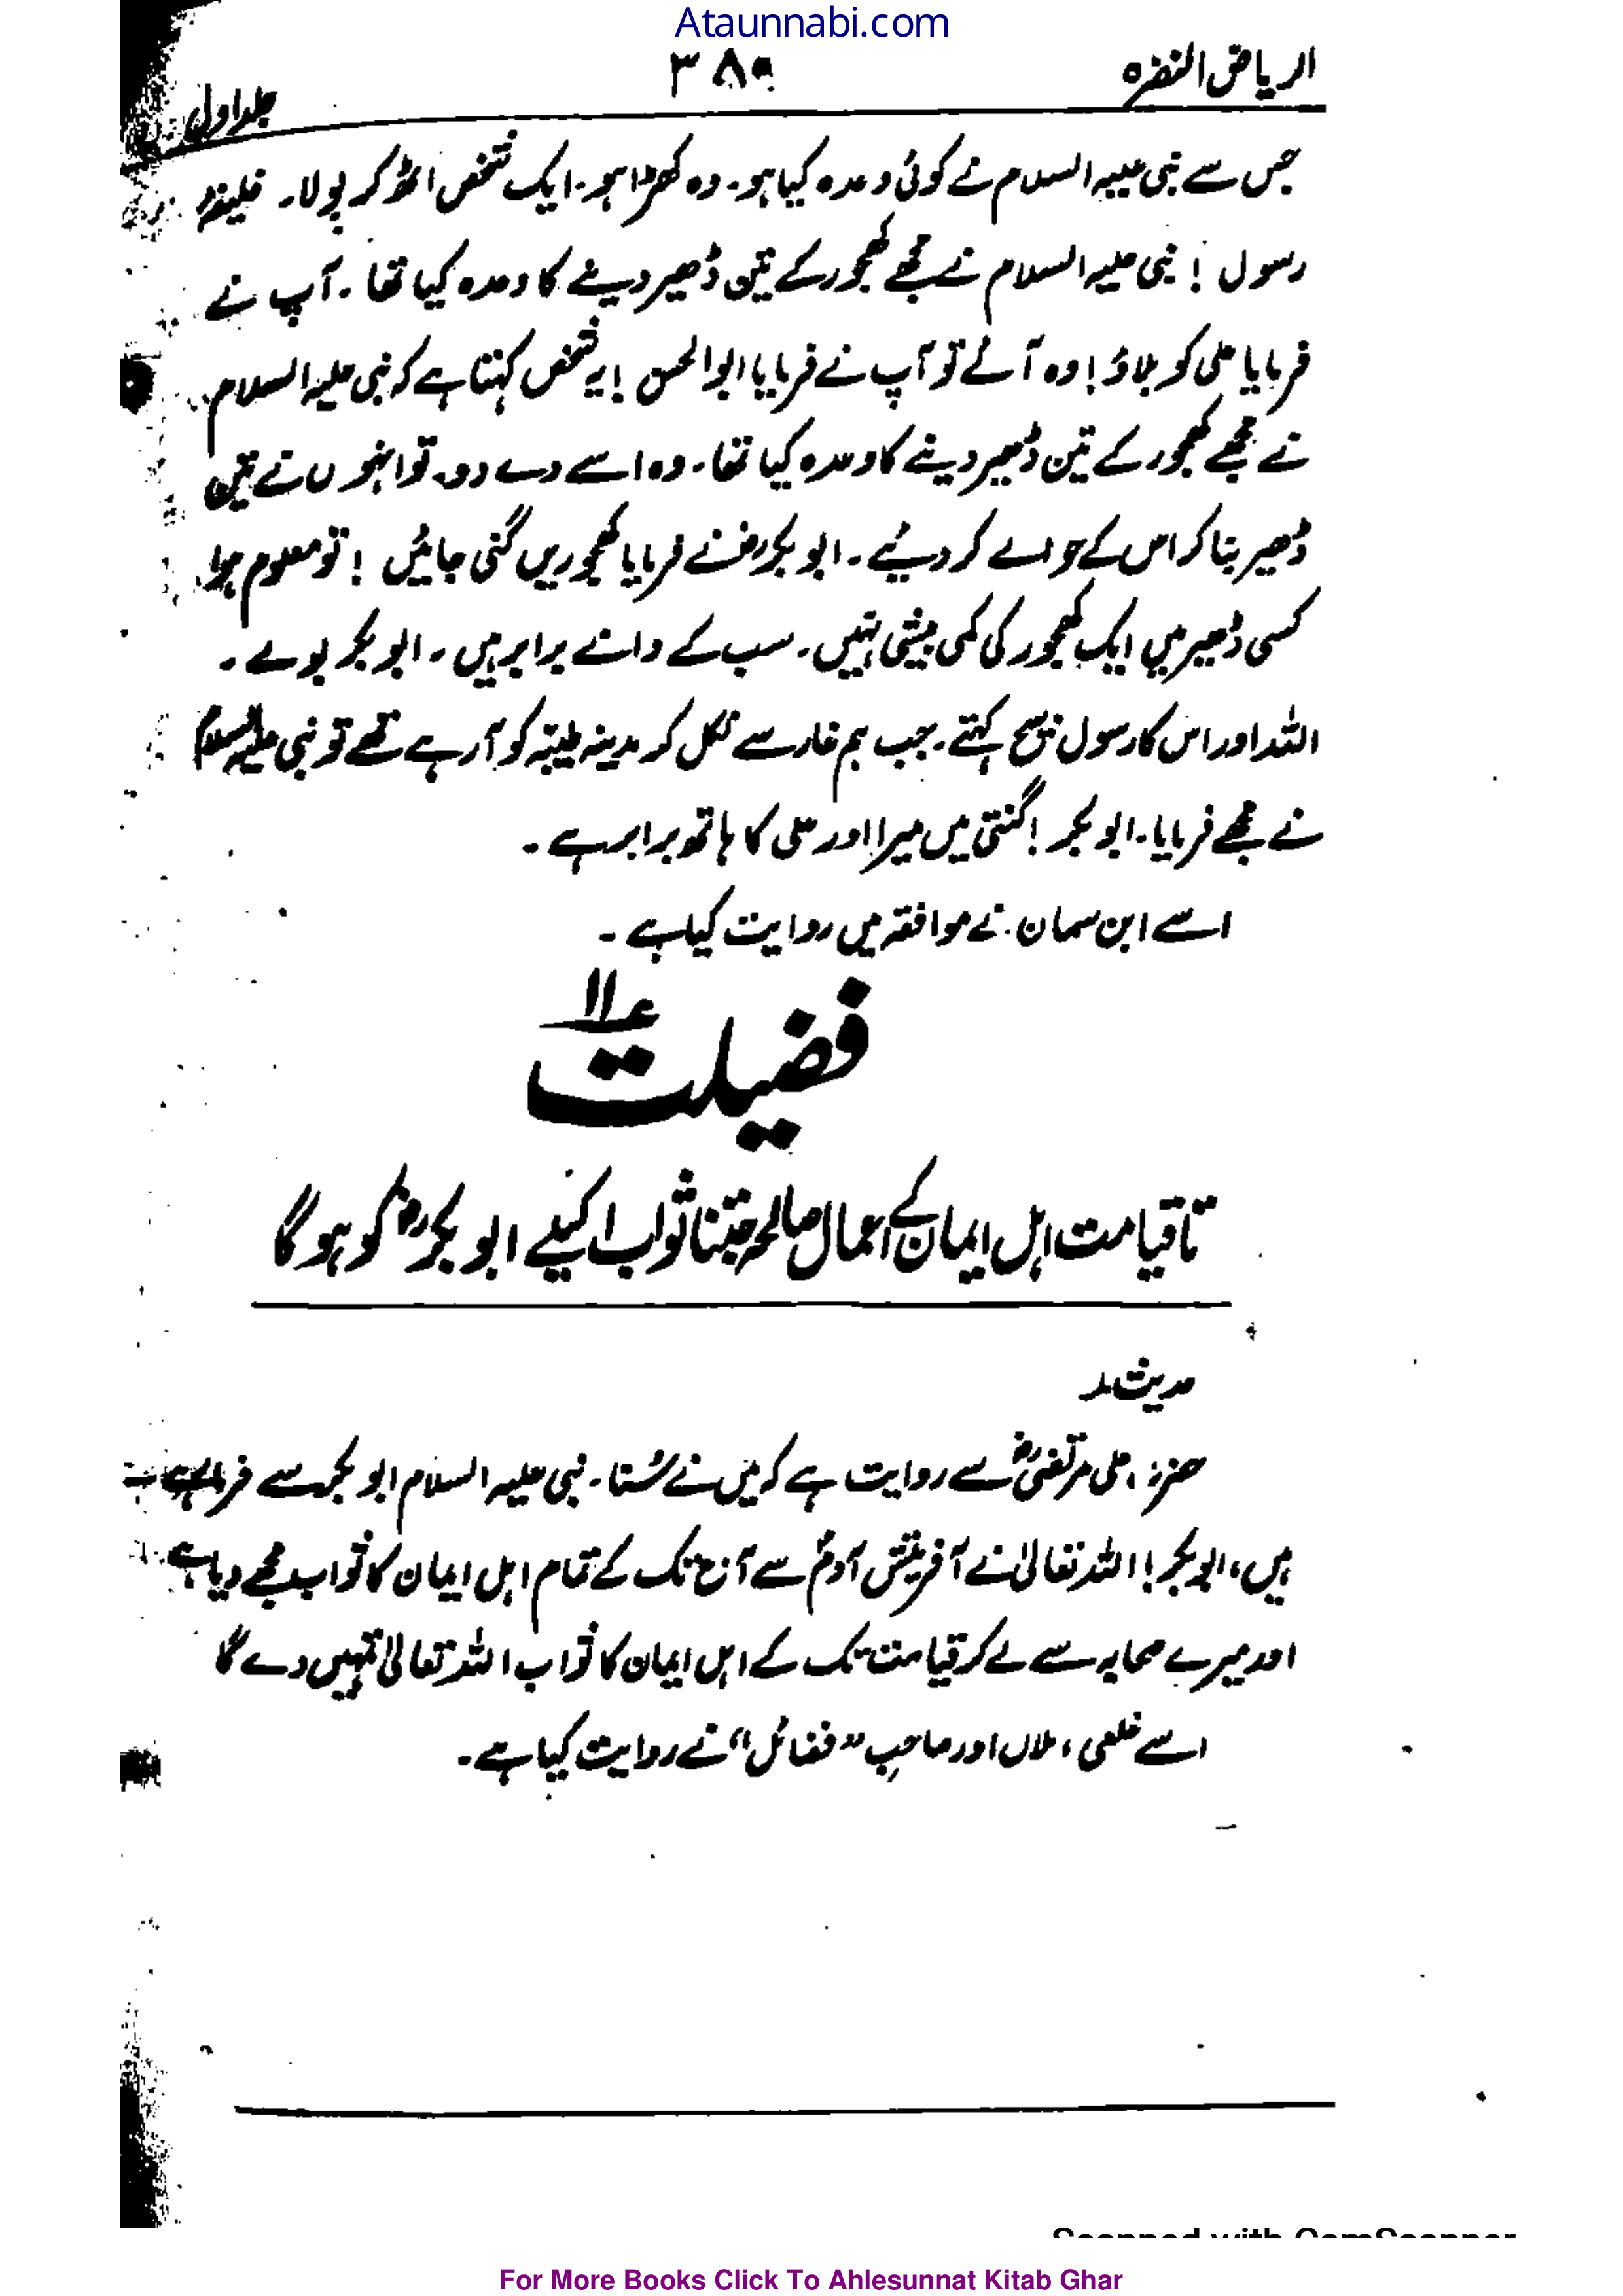 Ataunnabi.com
الریاض النضرہ ۳۸۹ جلد اول
جس سے نبی علیہ السلام نے کوئی وعدہ کیا ہو۔ وہ کھڑا ہو۔ ایک شخص اٹھ کر بولا۔ خلیفۂ
رسول ! نبی علیہ السلام نے مجھے کھجور کے تین ڈھیر دینے کا وعدہ کیا تھا ۔ آپ نے
فرمایا علی کو بلاؤ ! وہ آئے تو آپ نے فرمایا ابوالحسن ! یہ شخص کہتا ہے کہ نبی علیہ السلام
نے مجھے کھجور کے تین ڈھیر دینے کا وعدہ کیا تھا۔ وہ اسے دے دو۔ تو انہوں نے تین
ڈھیر بنا کر اس کے حوالے کر دیئے ۔ ابوبکرؓ نے فرمایا کھجوریں گنی جائیں ! تو معلوم ہوا
کسی ڈھیر میں ایک کھجور کی کمی بیشی نہیں۔ سب کے دانے برابر ہیں ۔ ابوبکر بولے ۔
اللہ اور اس کا رسول سچ کہتے۔ جب ہم غار سے نکل کر مدینہ طیبہ کو آ رہے تھے تو نبی علیہ السلام
نے مجھے فرمایا۔ ابوبکر ! گنتی میں میرا اور علی کا ہاتھ برابر ہے ۔
اسے ابن سمان نے موافقہ میں روایت کیا ہے ۔
فضیلت ۱۱ء
تا قیامت اہل ایمان کے اعمال صالحہ جتنا ثواب اکیلے ابوبکرؓ کو ہوگا
حدیث:
حضرت علی مرتضیٰؓ سے روایت ہے کہ میں نے سُنا۔ نبی علیہ السلام ابوبکر سے فرما رہے
ہیں، ابوبکر ! اللہ تعالیٰ نے آفرینش آدمؑ سے آج تک کے تمام اہل ایمان کا ثواب مجھے دیا ہے
اور میرے صحابہ سے لے کر قیامت تک کے اہل ایمان کا ثواب اللہ تعالیٰ تمہیں دے گا
اسے خلعی ، ملاں اور صاحبِ "فضائل" نے روایت کیا ہے۔
Scanned with CamScanner
For More Books Click To Ahlesunnat Kitab Ghar